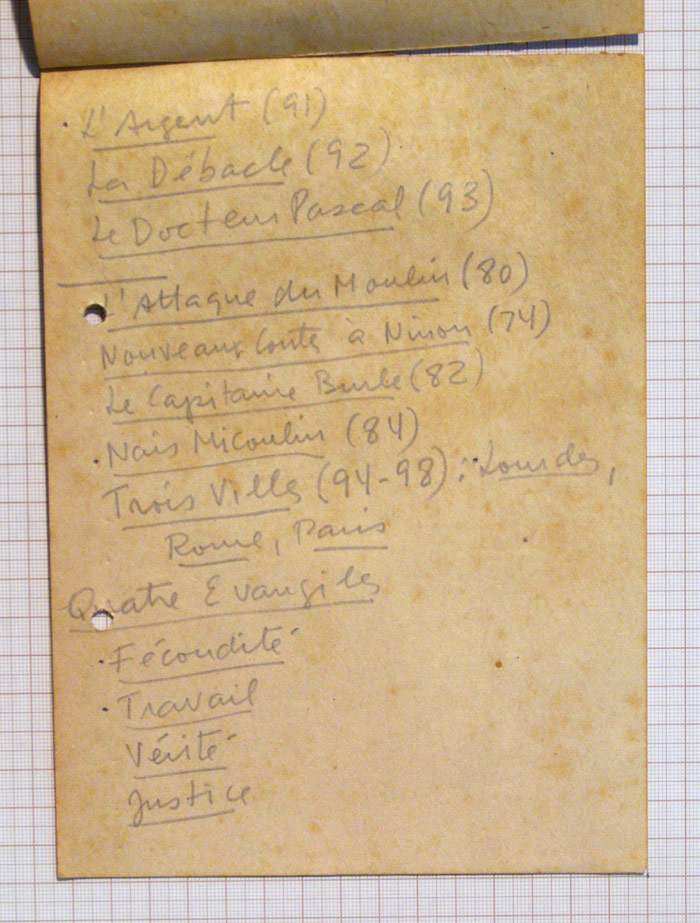 · L'Argent (91)
La Débacle (92)
Le Docteur Pascal (93)
L'Attaque du Moulin (80)
Nouveaux Contes à Ninon (74)
Le Capitaine Burle (82)
· Nais Micoulin (84)
Trois Villes (94-98): Lourdes,
Rome, Paris
Quatre Evangiles
· Fécondité
· Travail
Vérité
Justice